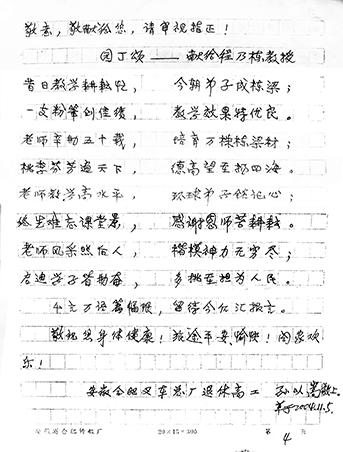 教去，敬献给您，请审视指正！
园丁颂——献给程乃栋教授
昔日教学耕耘忙， 今朝弟子成栋梁；
一支粉笔创佳绩， 教学效果特优良。
老师辛勤五十载， 培育万棵栋梁材；
桃李芬芳遍天下， 德高望重扬四海。
老师教学高水平， 环球弟子铭记心；
终生难忘课堂景， 感谢恩师苦耕耘。
老师风采照后人， 楷模神力无穷尽；
启迪学子皆勤奋， 多挑重担为人民。
千言万语篇幅限，留待今后汇报言。
敬祝您身体健康！旅途平安愉快！阖家欢
乐！
安徽合肥叉车总厂退休高工 孙以嵩敬上
草于2004.11.5.
20×15=300
第 4 页